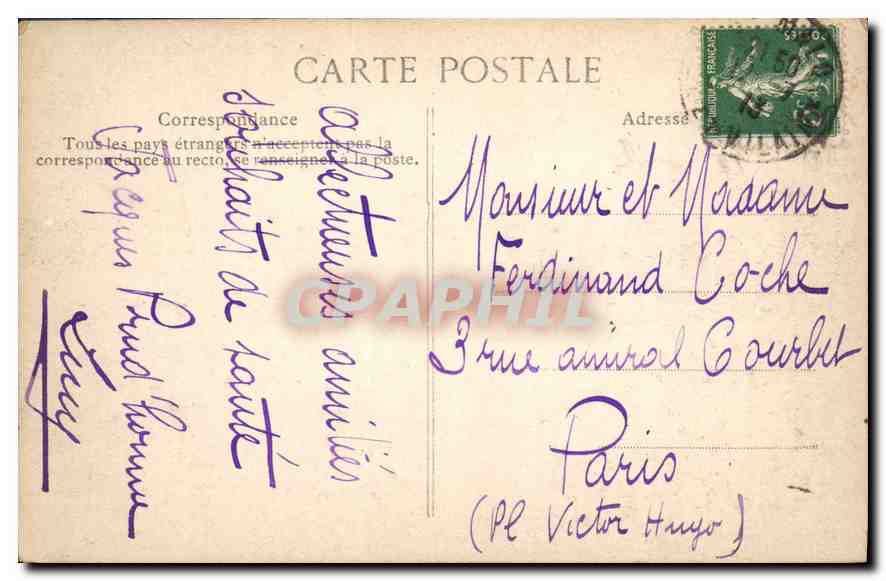 CARTE POSTALE
Correspondance
Tous les pays étrangers n'acceptent pas la
correspondance au recto, se renseigner à la poste.
Adresse
RÉPUBLIQUE FRANÇAISE
POSTES
affectueuses amitiés
souhaits de santé
Jacques Prud'homme
Lucy
Monsieur et Madame
Ferdinand Coche
3 rue amiral Courbet
Paris
(Pl Victor Hugo)
CPAPHIL